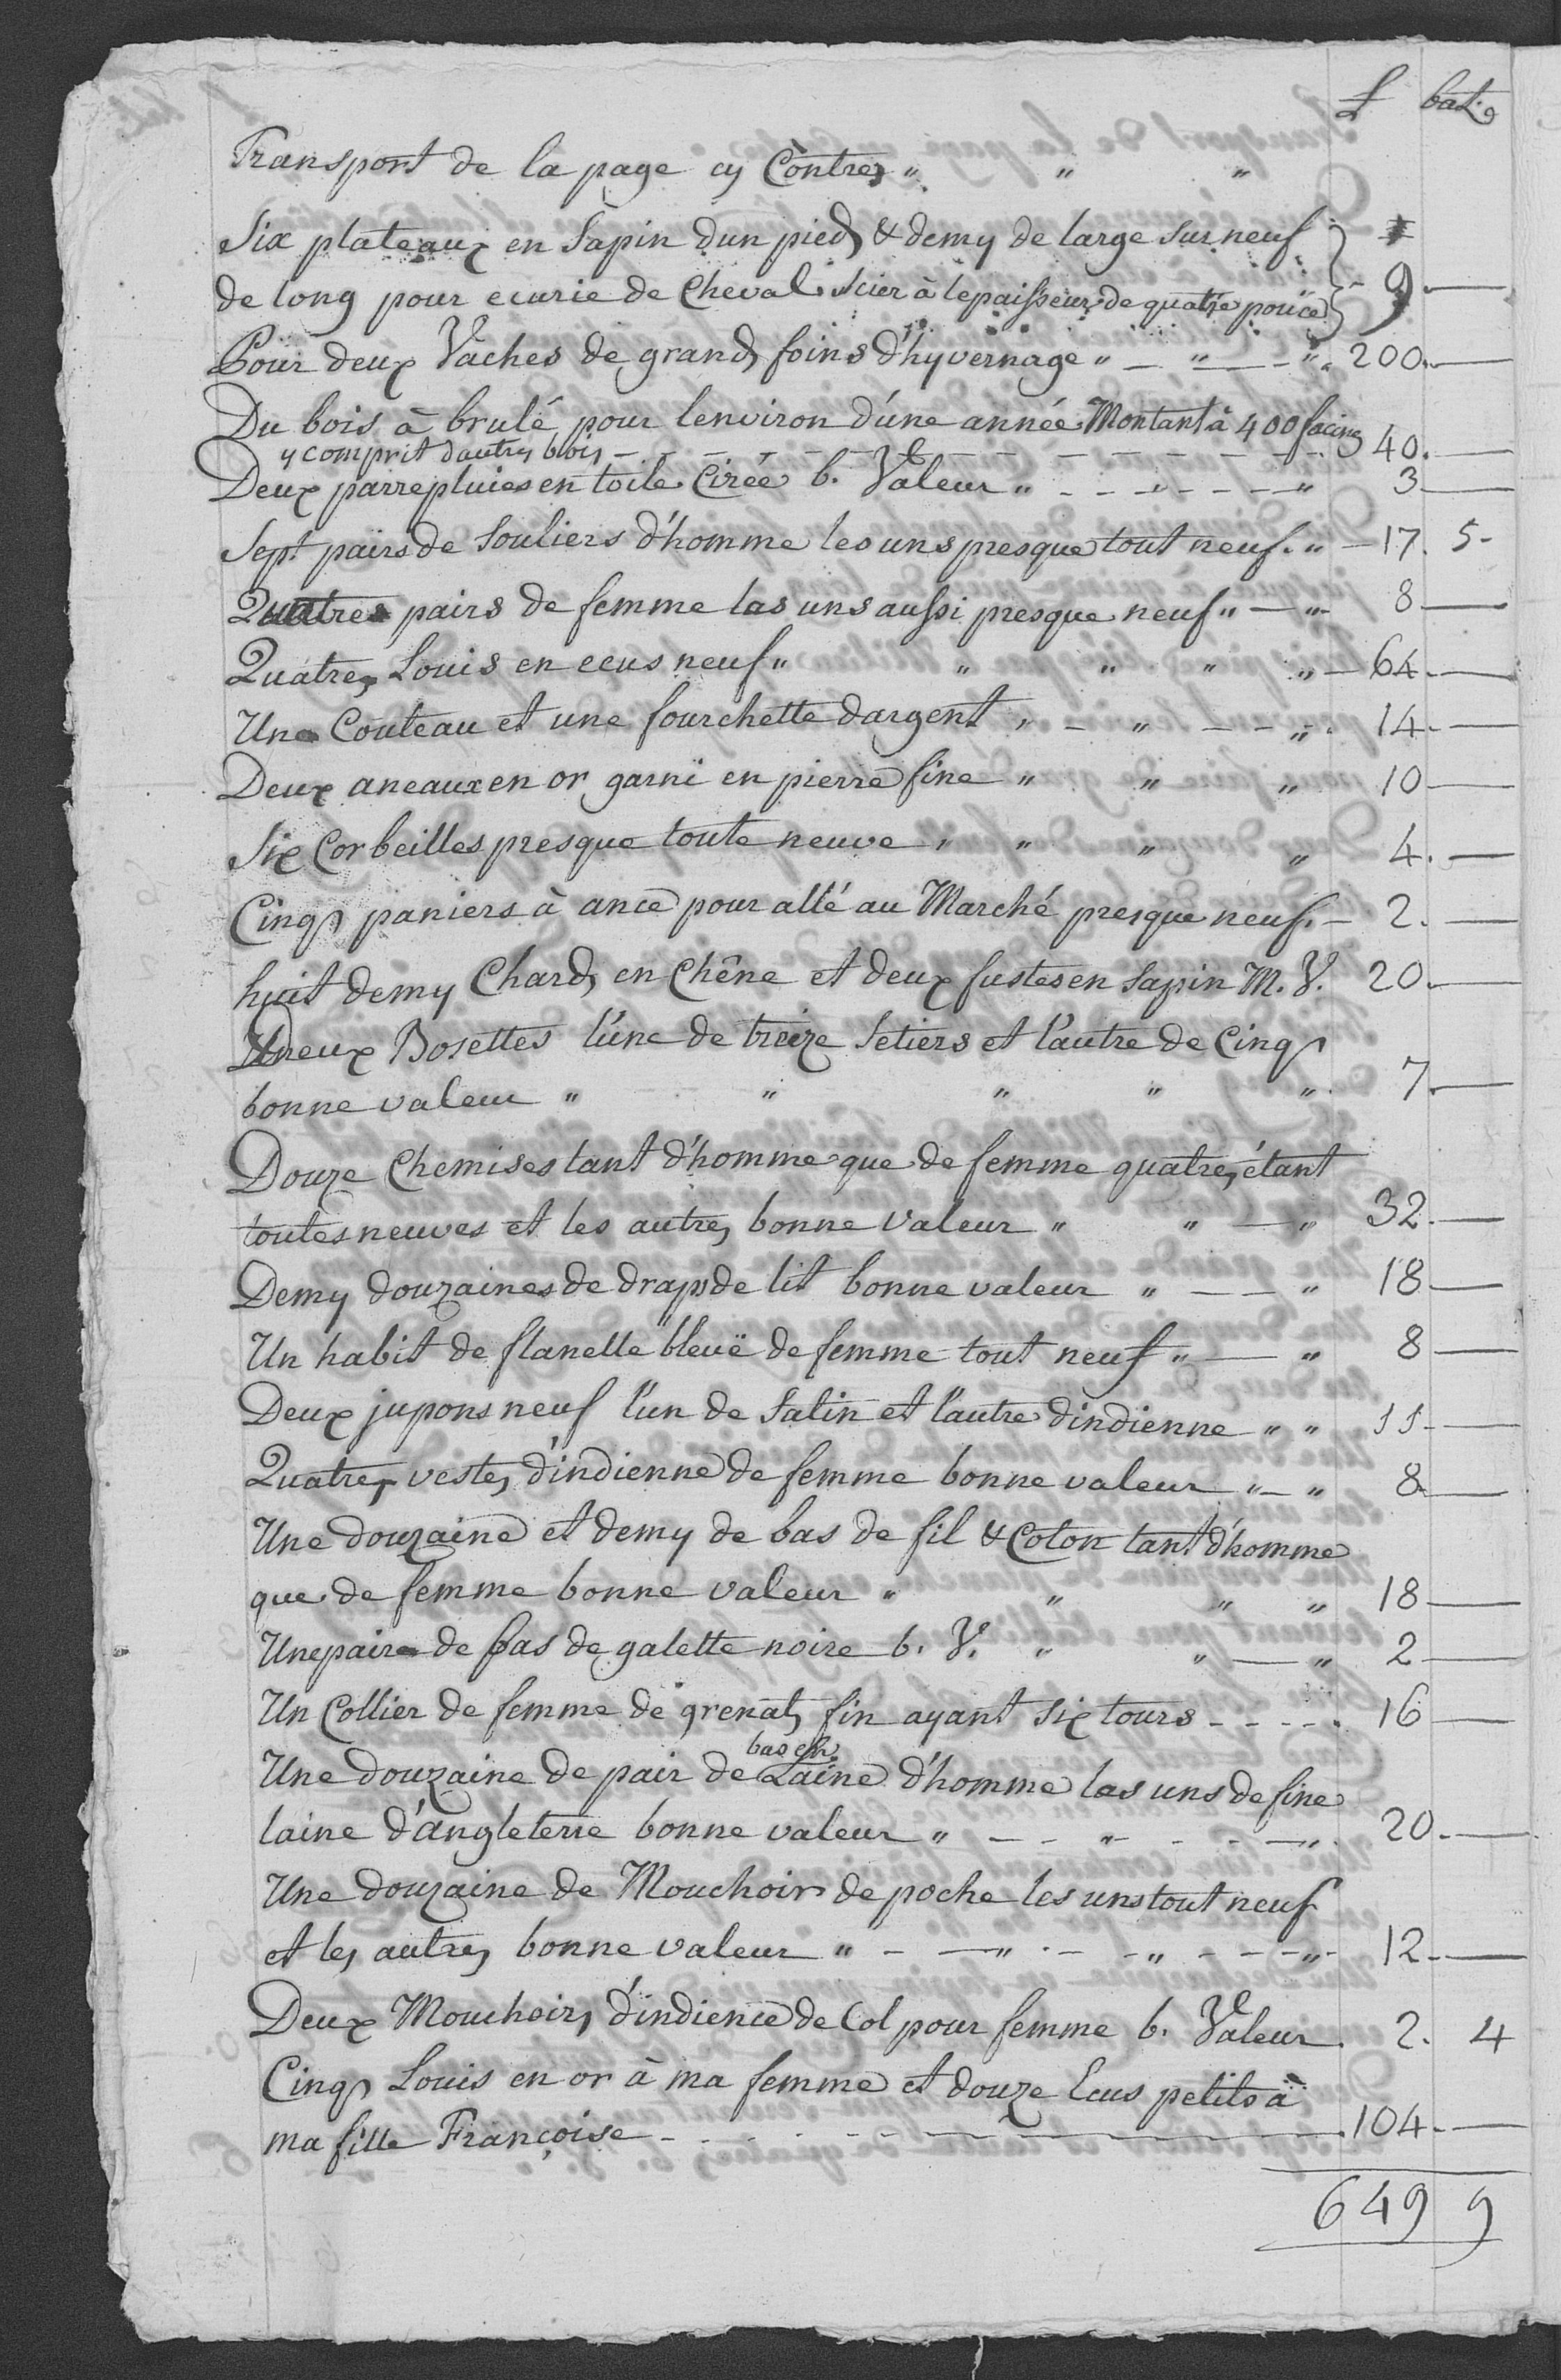 L bat.
Transport de la page cy Contre " " "
Six plateaux en Sapin dun pied & demy de large sur neuf
de long pour ecurie de Cheval scier à lepaisseur de quatre pouce 9 —
Pour deux Vaches de grand foins d'hyvernage " — " — " 200. —
Du bois à brulé pour lenviron d'une année Montant à 400 facins
y comprit dautres bois - - - - - - 40. —
Deux parrepluies en toile Cirée b. Valeur " - - " - - " 3 —
Sept pairs de Souliers d'homme les uns presque tout neuf. " — 17. 5-
Quatres pairs de femme las uns aussi presque neuf " — " 8 —
Quatre Louis en ecus neuf " " " " " — 64. —
Une Couteau et une fourchette dargent " - " - - " 14. —
Deux aneaux en or garni en pierre fine " " " 10 —
Six Corbeilles presque toute neuve " " " " 4. —
Cinq paniers à ance pour allé au Marché presque neuf. — 2. —
huit demy Chard en Chêne et deux fustes en Sapin M. V. 20. —
Deux Bosettes l'une de treize Setiers et l'autre de Cinq
bonne valeur " " " " " 7. —
Douze Chemises tant d'homme que de femme quatre étant
toutes neuves et les autres bonne Valeur " " — " 32. —
Demy douzaines de draps de lit bonne valeur " — — " 18 —
Un habit de flanelle bleuë de femme tout neuf " — " 8 —
Deux jupons neuf l'un de Satin et l'autre dindienne " " 11 —
Quatre vestes d'indienne de femme bonne valeur " — " 8 —
Une douzaine et demy de bas de fil & Coton tant d'homme
que de femme bonne valeur " " " " 18 —
Une paire de bas de galette noire b. V. " " — " 2 —
Un Collier de femme de grenats fin ayant Six tours - - - - 16 —
bas en
Une douzaine de pair de Laine d'homme las uns de fine
laine d'angleterre bonne valeur " - - " - - - " 20. —
Une douzaine de Mouchoir de poche les uns tout neuf
et les autres bonne valeur " - — " - - " - - - " 12. —
Deux Mouchoirs d'indience de Col pour femme b. Valeur. 2. 4
Cinq Louis en or à ma femme et douze Ecus petits à
ma fille Françoise - - - - - - 104. —
649 9